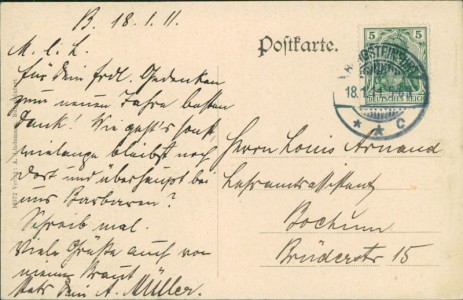 B. 18.1.11.
M. l. L.
Für Dein frdl. Gedenken
zum neuen Jahre besten
Dank! Wie geht's sonst,
wielange bleibst noch
dort und überhaupt bei
uns Barbaren?
Schreib mal.
Viele Grüße auch von
meiner Braut
stets Dein A. Müller.
Postkarte.
5 5
DEUTSCHES REICH
18.1.
* * c
Herrn Louis Arnand
Bochum
Brüderstr 15